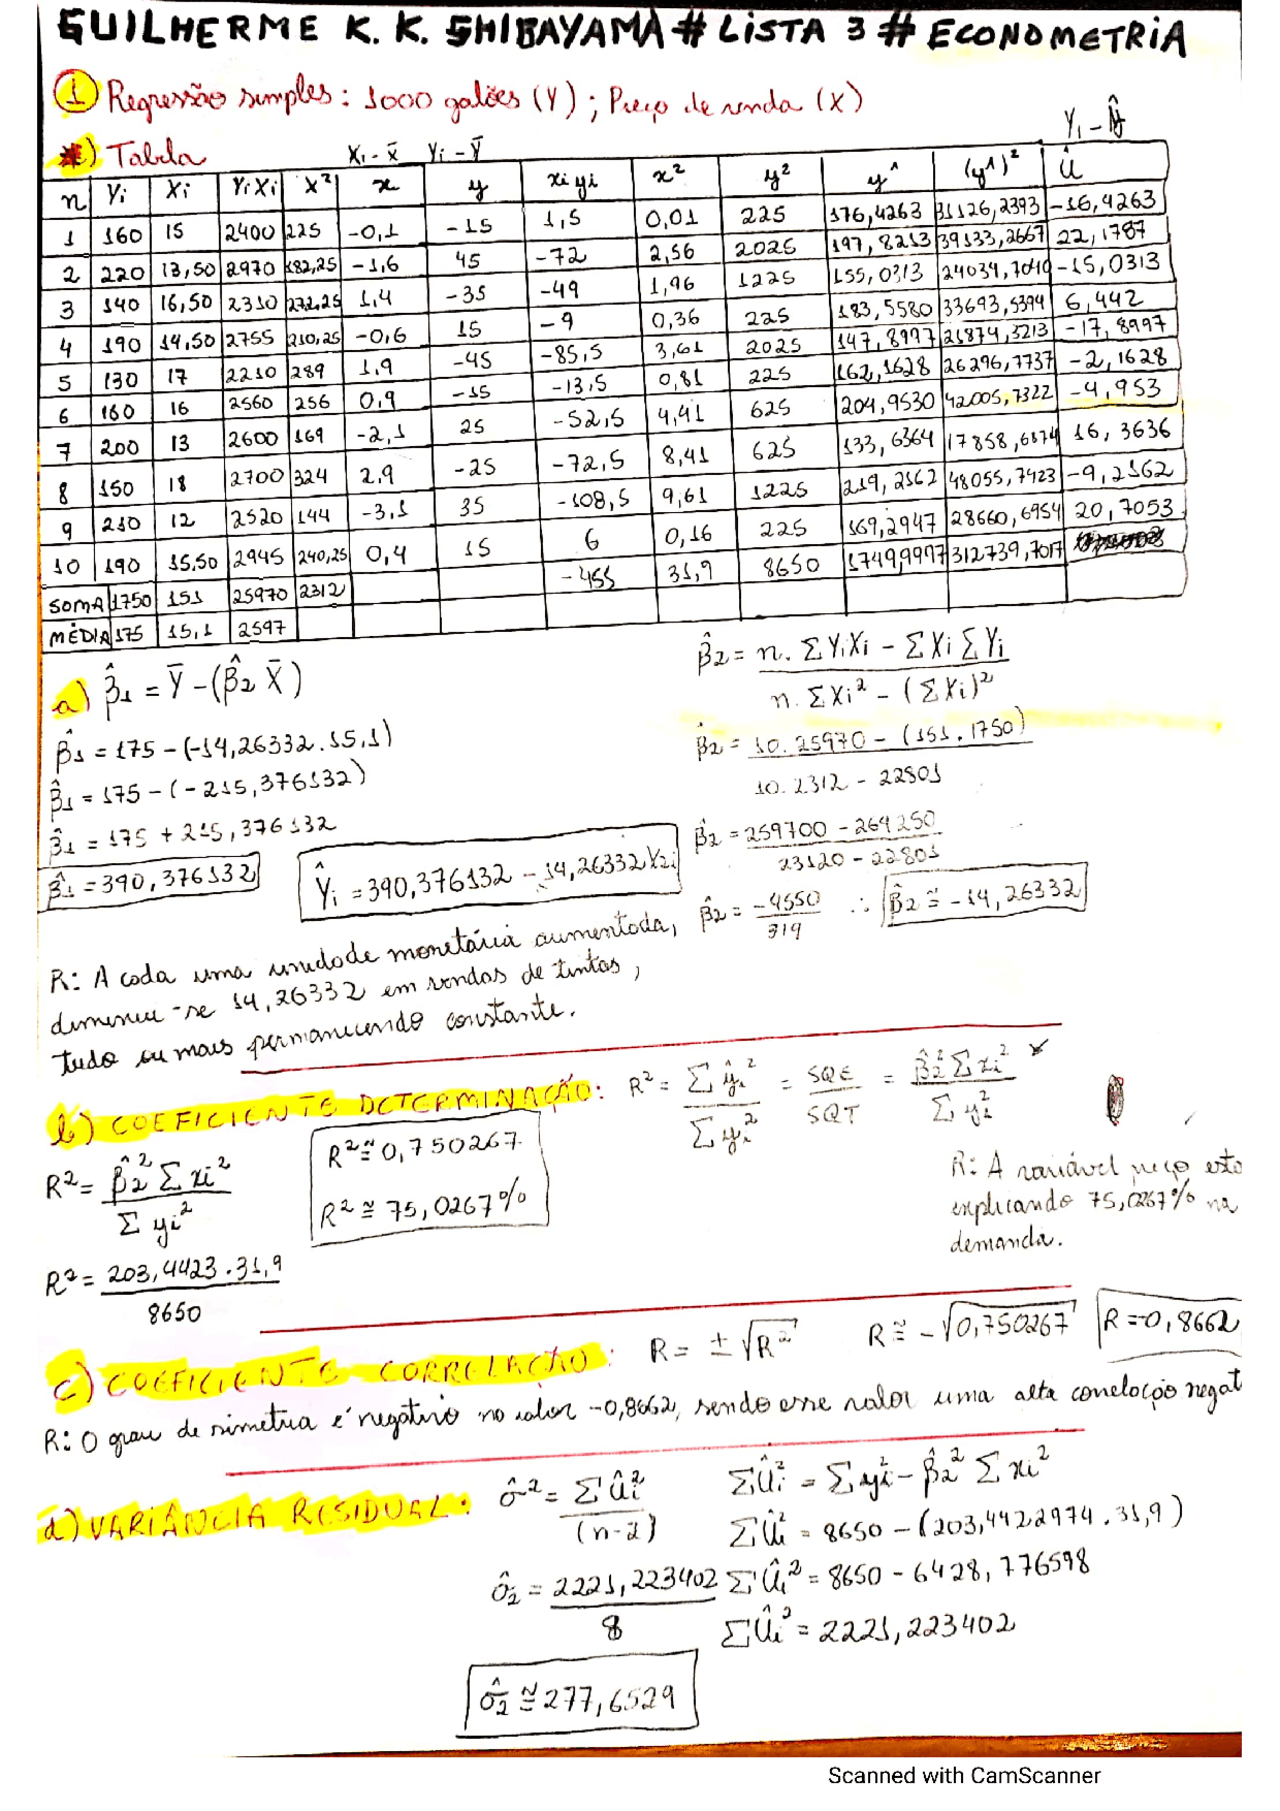 GUILHERME K. K. SHIBAYAMA # LISTA 3 # ECONOMETRIA
① Regressão simples: 1000 galões (Y) ; Preço de venda (X)
*) Tabela Xi - X̄ Yi - Ȳ Yi - Ŷ
n Yi Xi YiXi X² x y xiyi x² y² y^ (y^)² û
1 160 15 2400 225 -0,1 -15 1,5 0,01 225 176,4263 31126,2393 -16,4263
2 220 13,50 2970 182,25 -1,6 45 -72 2,56 2025 197,8213 39133,2667 22,1787
3 140 16,50 2310 272,25 1,4 -35 -49 1,96 1225 155,0313 24034,7040 -15,0313
4 190 14,50 2755 210,25 -0,6 15 -9 0,36 225 183,5580 33693,5394 6,442
5 130 17 2210 289 1,9 -45 -85,5 3,61 2025 147,8997 21874,3213 -17,8997
6 160 16 2560 256 0,9 -15 -13,5 0,81 225 162,1628 26296,7737 -2,1628
7 200 13 2600 169 -2,1 25 -52,5 4,41 625 204,9530 42005,7322 -4,953
8 150 18 2700 324 2,9 -25 -72,5 8,41 625 133,6364 17858,6874 16,3636
9 210 12 2520 144 -3,1 35 -108,5 9,61 1225 219,2162 48055,7423 -9,2162
10 190 15,50 2945 240,25 0,4 15 6 0,16 225 169,2947 28660,6954 20,7053
SOMA 1750 151 25970 2312 -455 31,9 8650 1749,9997 312739,7017
MÉDIA 175 15,1 2597
a) β̂1 = Ȳ - (β̂2 X̄)
β̂1 = 175 - (-14,26332 . 15,1)
β̂1 = 175 - (-215,376132)
β̂1 = 175 + 215,376132
β̂1 = 390,376132
Ŷi = 390,376132 - 14,26332X2i
β̂2 = n. ΣYiXi - ΣXi ΣYi / n. ΣXi² - (ΣXi)²
β̂2 = 10.25970 - (151.1750) / 10.2312 - 22801
β̂2 = 259700 - 264250 / 23120 - 22801
β̂2 = -4550 / 319 ∴ β̂2 ≅ -14,26332
R: A cada uma unidade monetária aumentada,
diminui-se 14,26332 em vendas de tintas,
tudo ou mais permanecendo constante.
b) COEFICIENTE DETERMINAÇÃO: R² = Σŷi² / Σyi² = SQE / SQT = β̂2² Σxi² / Σyi²
R² = β̂2² Σxi² / Σyi²
R² = 203,4423.31,9 / 8650
R² ≅ 0,750267
R² ≅ 75,0267%
R: A variável preço esta
explicando 75,0267% na
demanda.
c) COEFICIENTE CORRELAÇÃO: R = ±√R² R ≅ -√0,750267 R = -0,8662
R: O grau de simetria é negativo no valor -0,8662, sendo esse valor uma alta correlação negat
d) VARIÂNCIA RESIDUAL: σ̂² = Σûi² / (n-2)
σ̂2 = 2221,223402 / 8
σ̂2 ≅ 277,6529
Σûi² = Σyi² - β̂2² Σxi²
Σûi² = 8650 - (203,4422974.31,9)
Σûi² = 8650 - 6428,776598
Σûi² = 2221,223402
Scanned with CamScanner